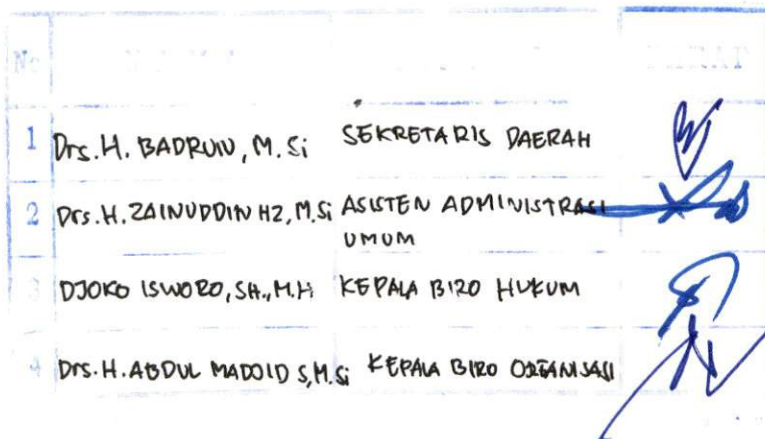 No
1 Drs. H. BADRUN, M. Si SEKRETARIS DAERAH
2 Drs. H. ZAINUDDIN HZ, M. Si ASISTEN ADMINISTRASI
UMUM
3 DJOKO ISWORO, SH., M.H KEPALA BIRO HUKUM
4 Drs. H. ABDUL MADJID S, M. Si KEPALA BIRO ORGANISASI